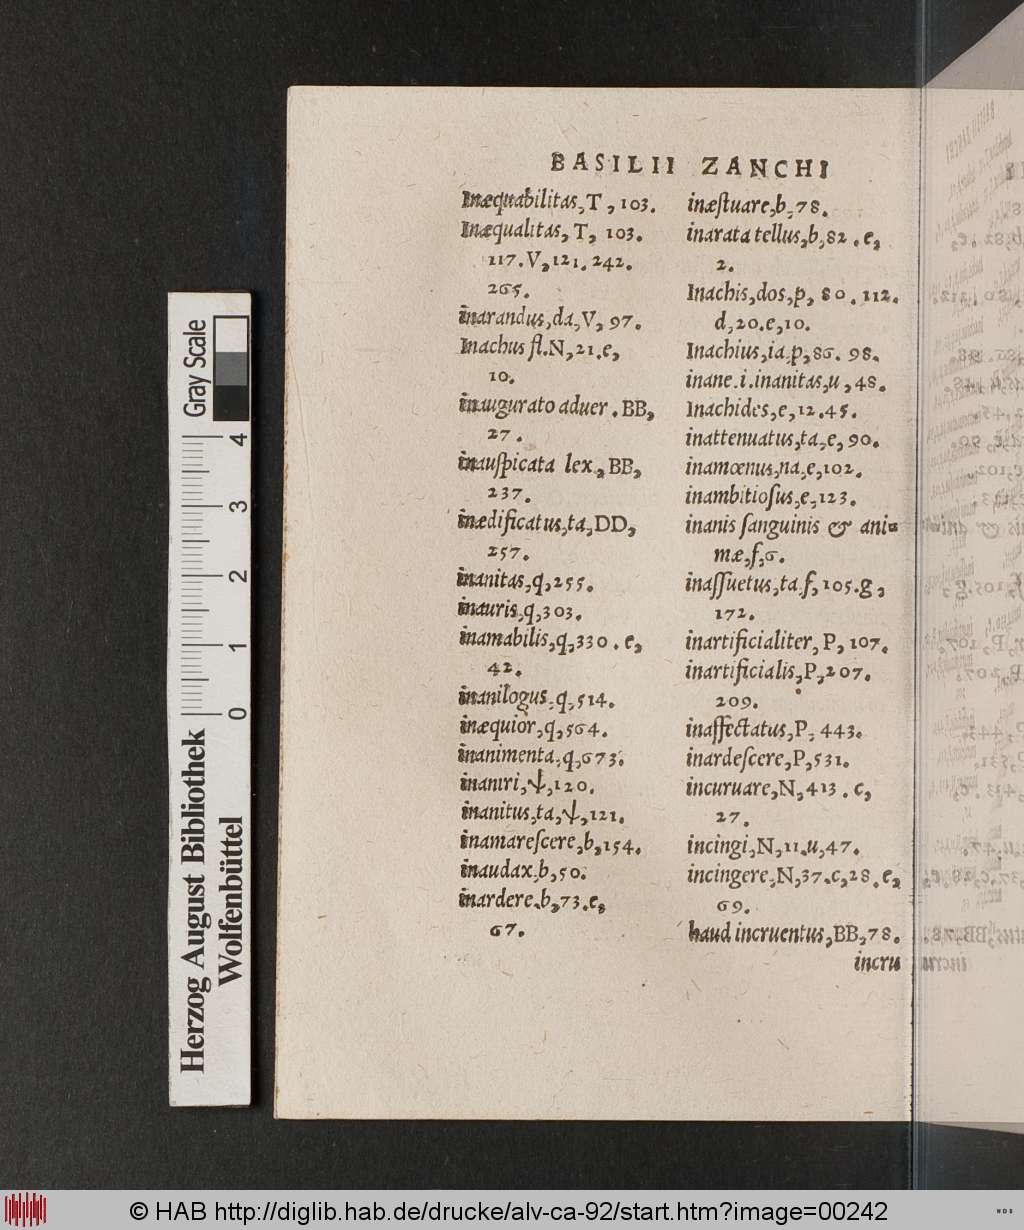 BASILII ZANCHI
Inæquabilitas, T, 103.
Inæqualitas, T, 103.
117. V, 121. 242.
265.
inarandus, da, V, 97.
Inachus fl. N, 21. e,
10.
inaugurato aduer. BB,
27.
inauſpicata lex, BB,
237.
inædificatus, ta, DD,
257.
inanitas, q, 255.
inauris, q, 303.
inamabilis, q, 330. e,
42.
inanilogus, q, 514.
inæquior, q, 564.
inanimenta, q, 673.
inaniri, ψ, 120.
inanitus, ta, ψ, 121.
inamareſcere, b, 154.
inaudax, b, 50.
inardere, b, 73. e,
67.
inæſtuare, b, 78.
inarata tellus, b, 82. e,
2.
Inachis, dos, p, 80. 112.
d, 20. e, 10.
Inachius, ia, p, 86. 98.
inane .i. inanitas, u, 48.
Inachides, e, 12. 45.
inattenuatus, ta, e, 90.
inamœnus, na, e, 102.
inambitioſus, e, 123.
inanis ſanguinis & ani=
mæ, f, 6.
inaſſuetus, ta, f, 105. g,
172.
inartificialiter, P, 107.
inartificialis, P, 207.
209.
inaffectatus, P, 443.
inardeſcere, P, 531.
incuruare, N, 413. c,
27.
incingi, N, 11. u, 47.
incingere, N, 37. c, 28. e,
69.
haud incruentus, BB, 78.
incru
Herzog August Bibliothek
Wolfenbüttel
Gray Scale
0 1 2 3 4
© HAB http://diglib.hab.de/drucke/alv-ca-92/start.htm?image=00242